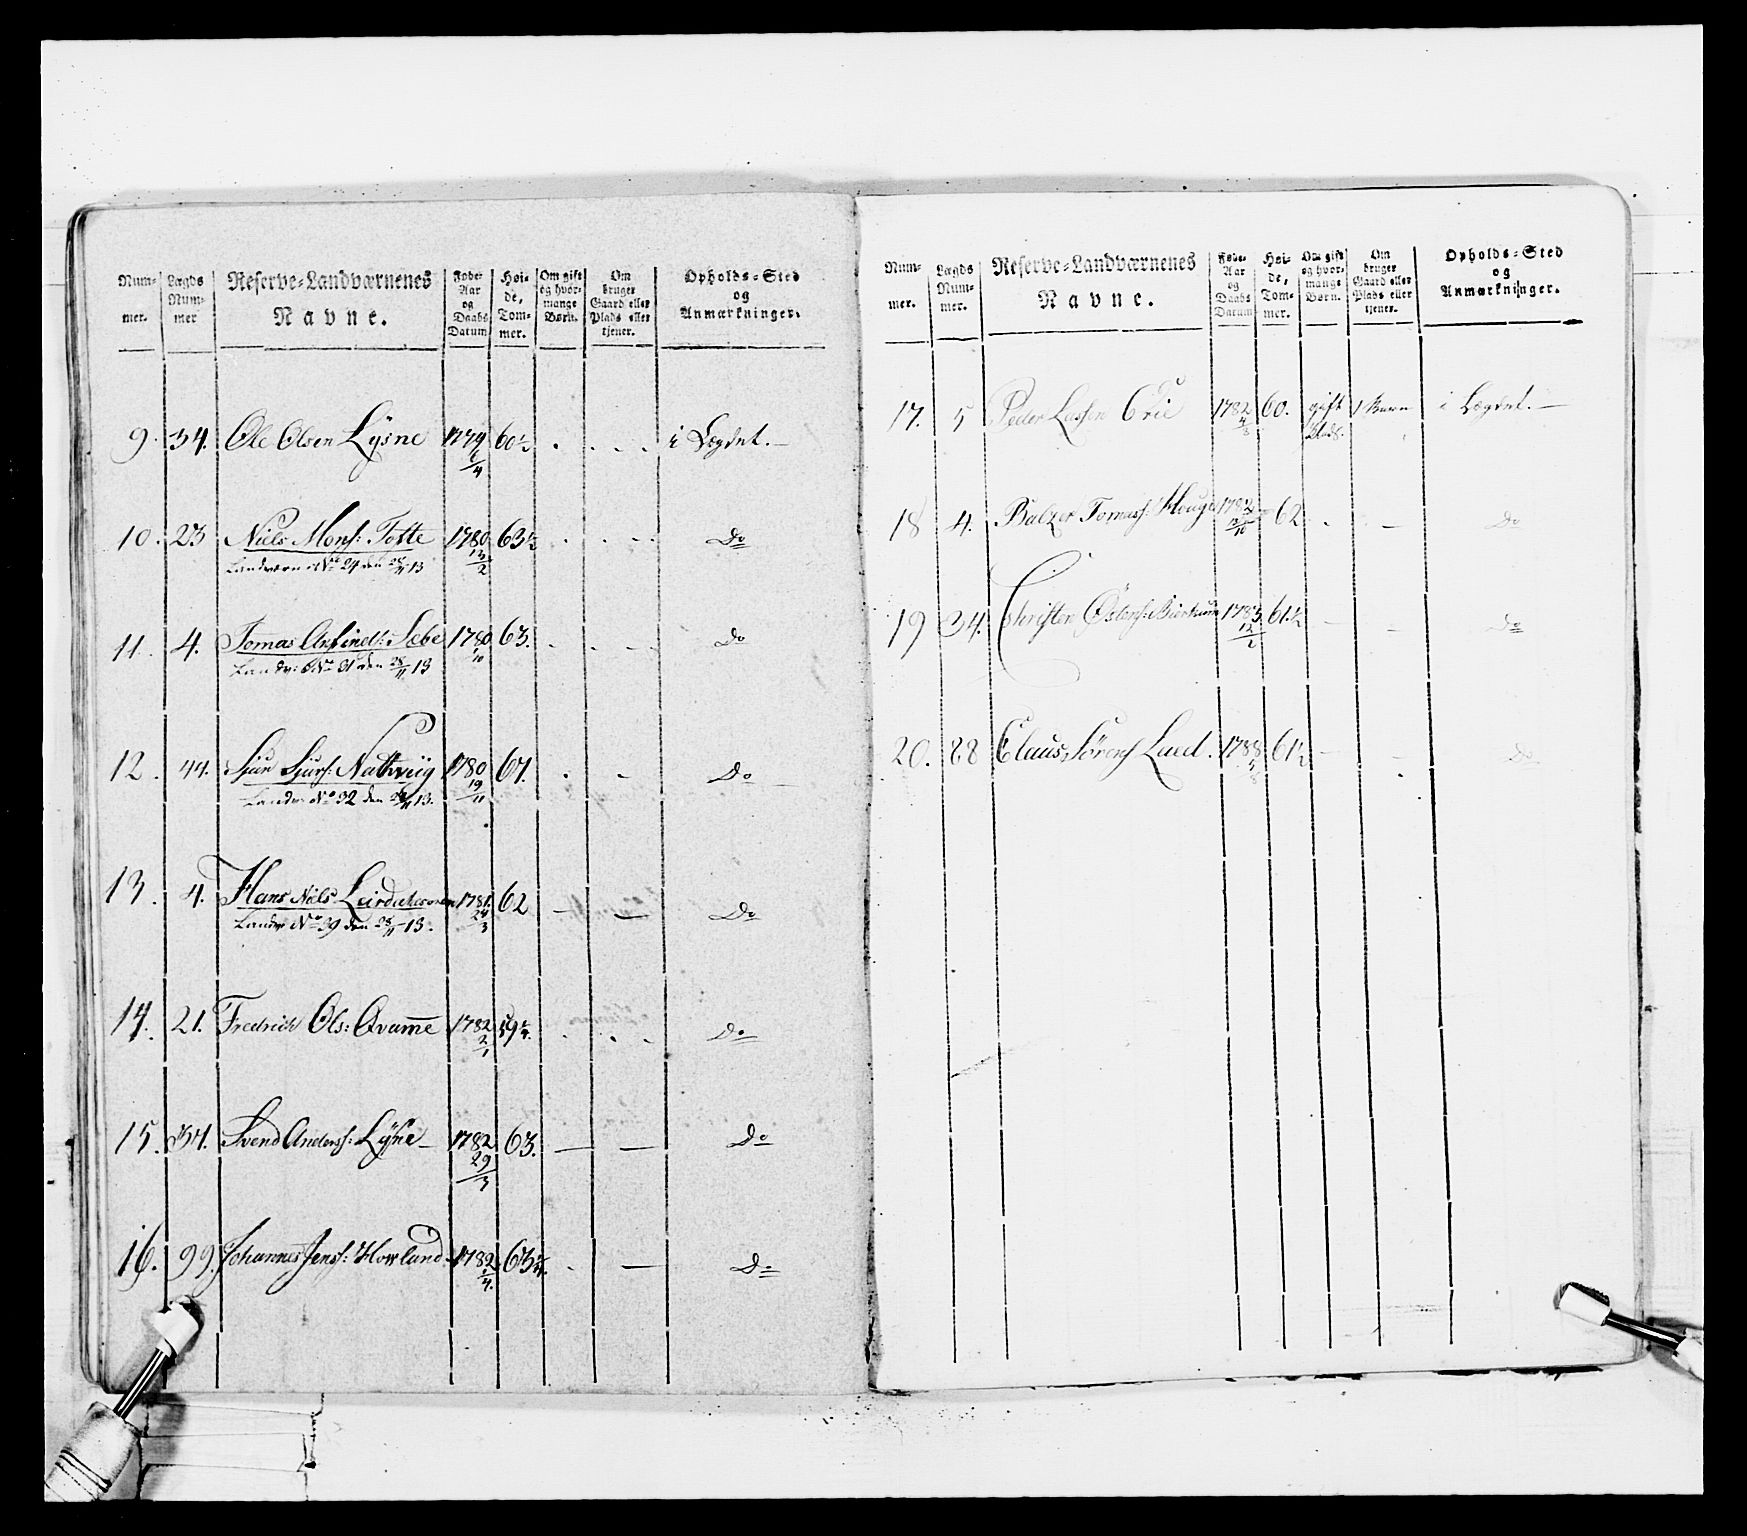 Num-
mer.
Lægds
Num-
mer
Reserve-Landværnenes
Navne.
Føde-
Aar
og
Daabs
Datum
Høi-
de,
Tom-
mer.
Om gift
og hvor-
mange
Børn.
Om
bruger
Gaard eller
Plads eller
tjener.
Opholds-Sted
og
Anmærkninger.
9. 34. Ole Olsen Lysne 1779 6/4 60½ i Lægdet.
10. 23 Niels Mons: Tofte 1780 13/2 63½ Do
Landværn No 24 den 28/11 13
11. 4. Tomas Arfindss: Sebe 1780 1/10 63. Do
Landv: No 31 den 28/11 13
12. 44. Sjur Sjurs: Nathviig 1780 19/11 61. Do
Landv: No 32 den 28/11 13.
13. 4. Hans Niels 1781. 24/3 62 Do
Landv No 39 den 28/11 13.
14. 21. Fredrich Ols: Qvam̅e 1782 2/1 59¼. Do
15. 34. Svend Anderss: Lysne 1782 29/3 63. Do
16. 99. Johannes Jenss: Howland 1782 1/4. 63¼. Do
Num-
mer.
Lægds
Num-
mer.
Reserve-Landværnenes
Navne.
Føde-
Aar
og
Daabs
Datum
Høi-
de,
Tom-
mer.
Om gift
og hvor-
mange
Børn.
Om
bruger
Gaard eller
Plads eller
tjener.
Opholds-Sted
og
Anmærkninger.
17. 5 Peder Lassen 1782 60. gift 1 Barn i Lægdet.
18 4. Balzer Tomass: Houge 62 Do
19 34. Christen 1783 12/2 61½ Do
20. 88 Claus Sørens Lund. 1788 61½ Do